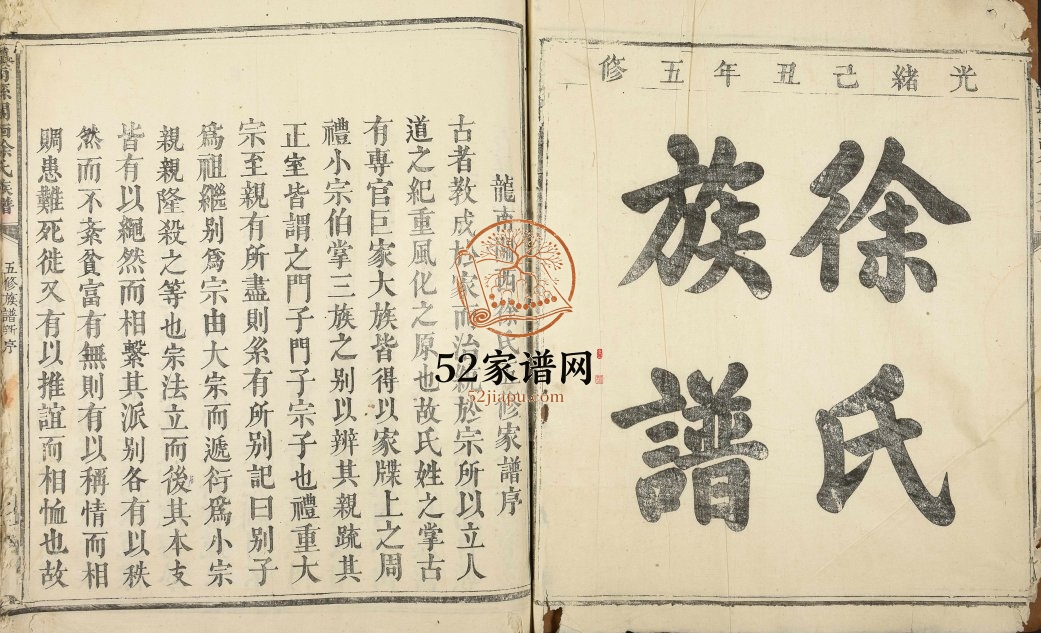 光緒己丑年五修
徐氏
族譜
龍南關西徐氏五修家譜序
古者教成於家而治統於宗所以立人
道之紀重風化之原也故氏姓之掌古
有專官巨家大族皆得以家牒上之周
禮小宗伯掌三族之別以辨其親疏其
正室皆謂之門子門子宗子也禮重大
宗至親有所盡則糸有所別記曰別子
爲祖繼別爲宗由大宗而遞衍爲小宗
親親隆殺之等也宗法立而後其本支
皆有以繩然而相繫其派別各有以秩
然而不紊貧富有無則有以稱情而相
賙患難死徙又有以推誼而相恤也故
關西徐氏族譜
五修族譜新序
52家谱网
52jiapu.com